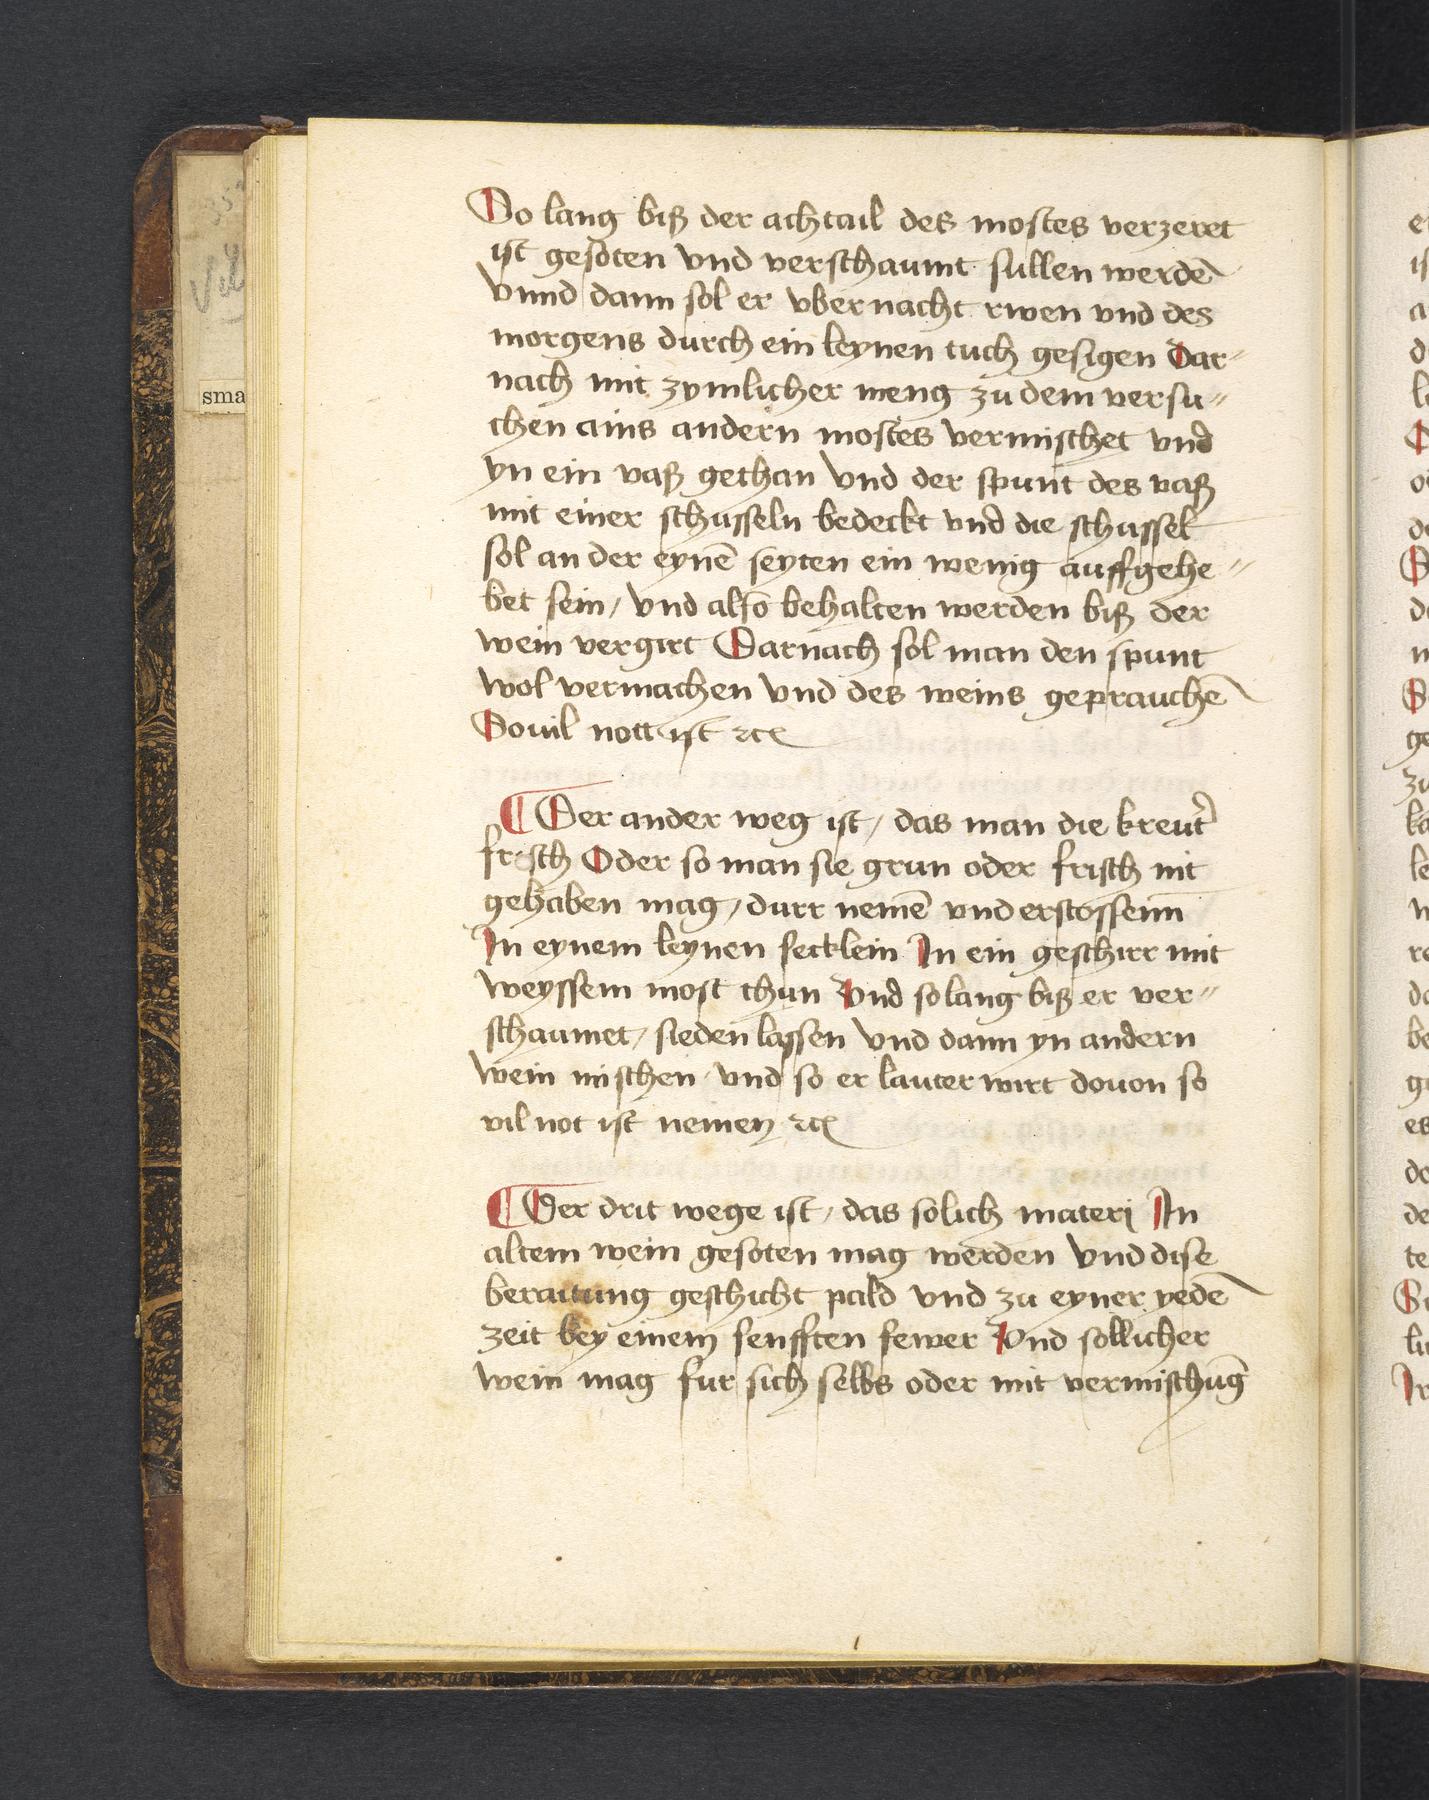 So lang biß der achtail des mostes verzeret
ist gesoten vnd verschaumt sullen werdē
Vnnd dann sol er vber nacht rwen vnd des
morgens durch ein leynen tuch gesigen Dar⸗
nach mit zymlicher meng zu dem versu⸗
chen ains andern mostes vermischet vnd
yn ein vaß gethan Vnd der spunt des vaß
mit einer schusseln bedeckt vnd die schussel
sol an der eynē seyten ein wenig auffgehe⸗
bet sein / Vnd also behalten werden biß der
wein vergirt Darnach sol man den spunt
wol vermachen Vnd des weins geprauchē
Souil nott ist ⁊c
¶ Der ander weg ist / das man die kreut̉
frisch Oder so man sie grun oder frisch nit
gehaben mag / durr nemē vnd erstossenn
In eynem leynen secklein In ein geschirr mit
weyssem most thun Vnd so lang biß er ver⸗
schaumet / sieden lassen Vnd dann yn andern
wein mischen Vnd so er lauter wirt douon so
vil not ist nemen ⁊c
¶ Der drit wege ist / das solich materj In
altem wein gesoten mag werden Vnd dise
beraitung geschicht pald vnd zu eyner yedē
zeit bey einem senfften fewer Vnd sollicher
wein mag fur sich selbs oder mit vermischūg
sma